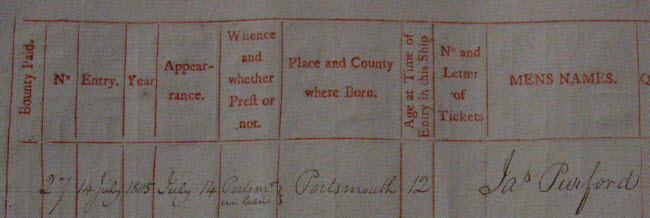 Bounty Paid.
No
Entry.
Year
Appear-
rance.
Whence
and
whether
Prest or
not.
Place and County
where Born.
Age at Time of
Entry in this Ship
No and
Letter
of
Tickets
MENS NAMES.
27 14 July 1805 July 14 Portsmo Portsmouth 12 Jas Purford